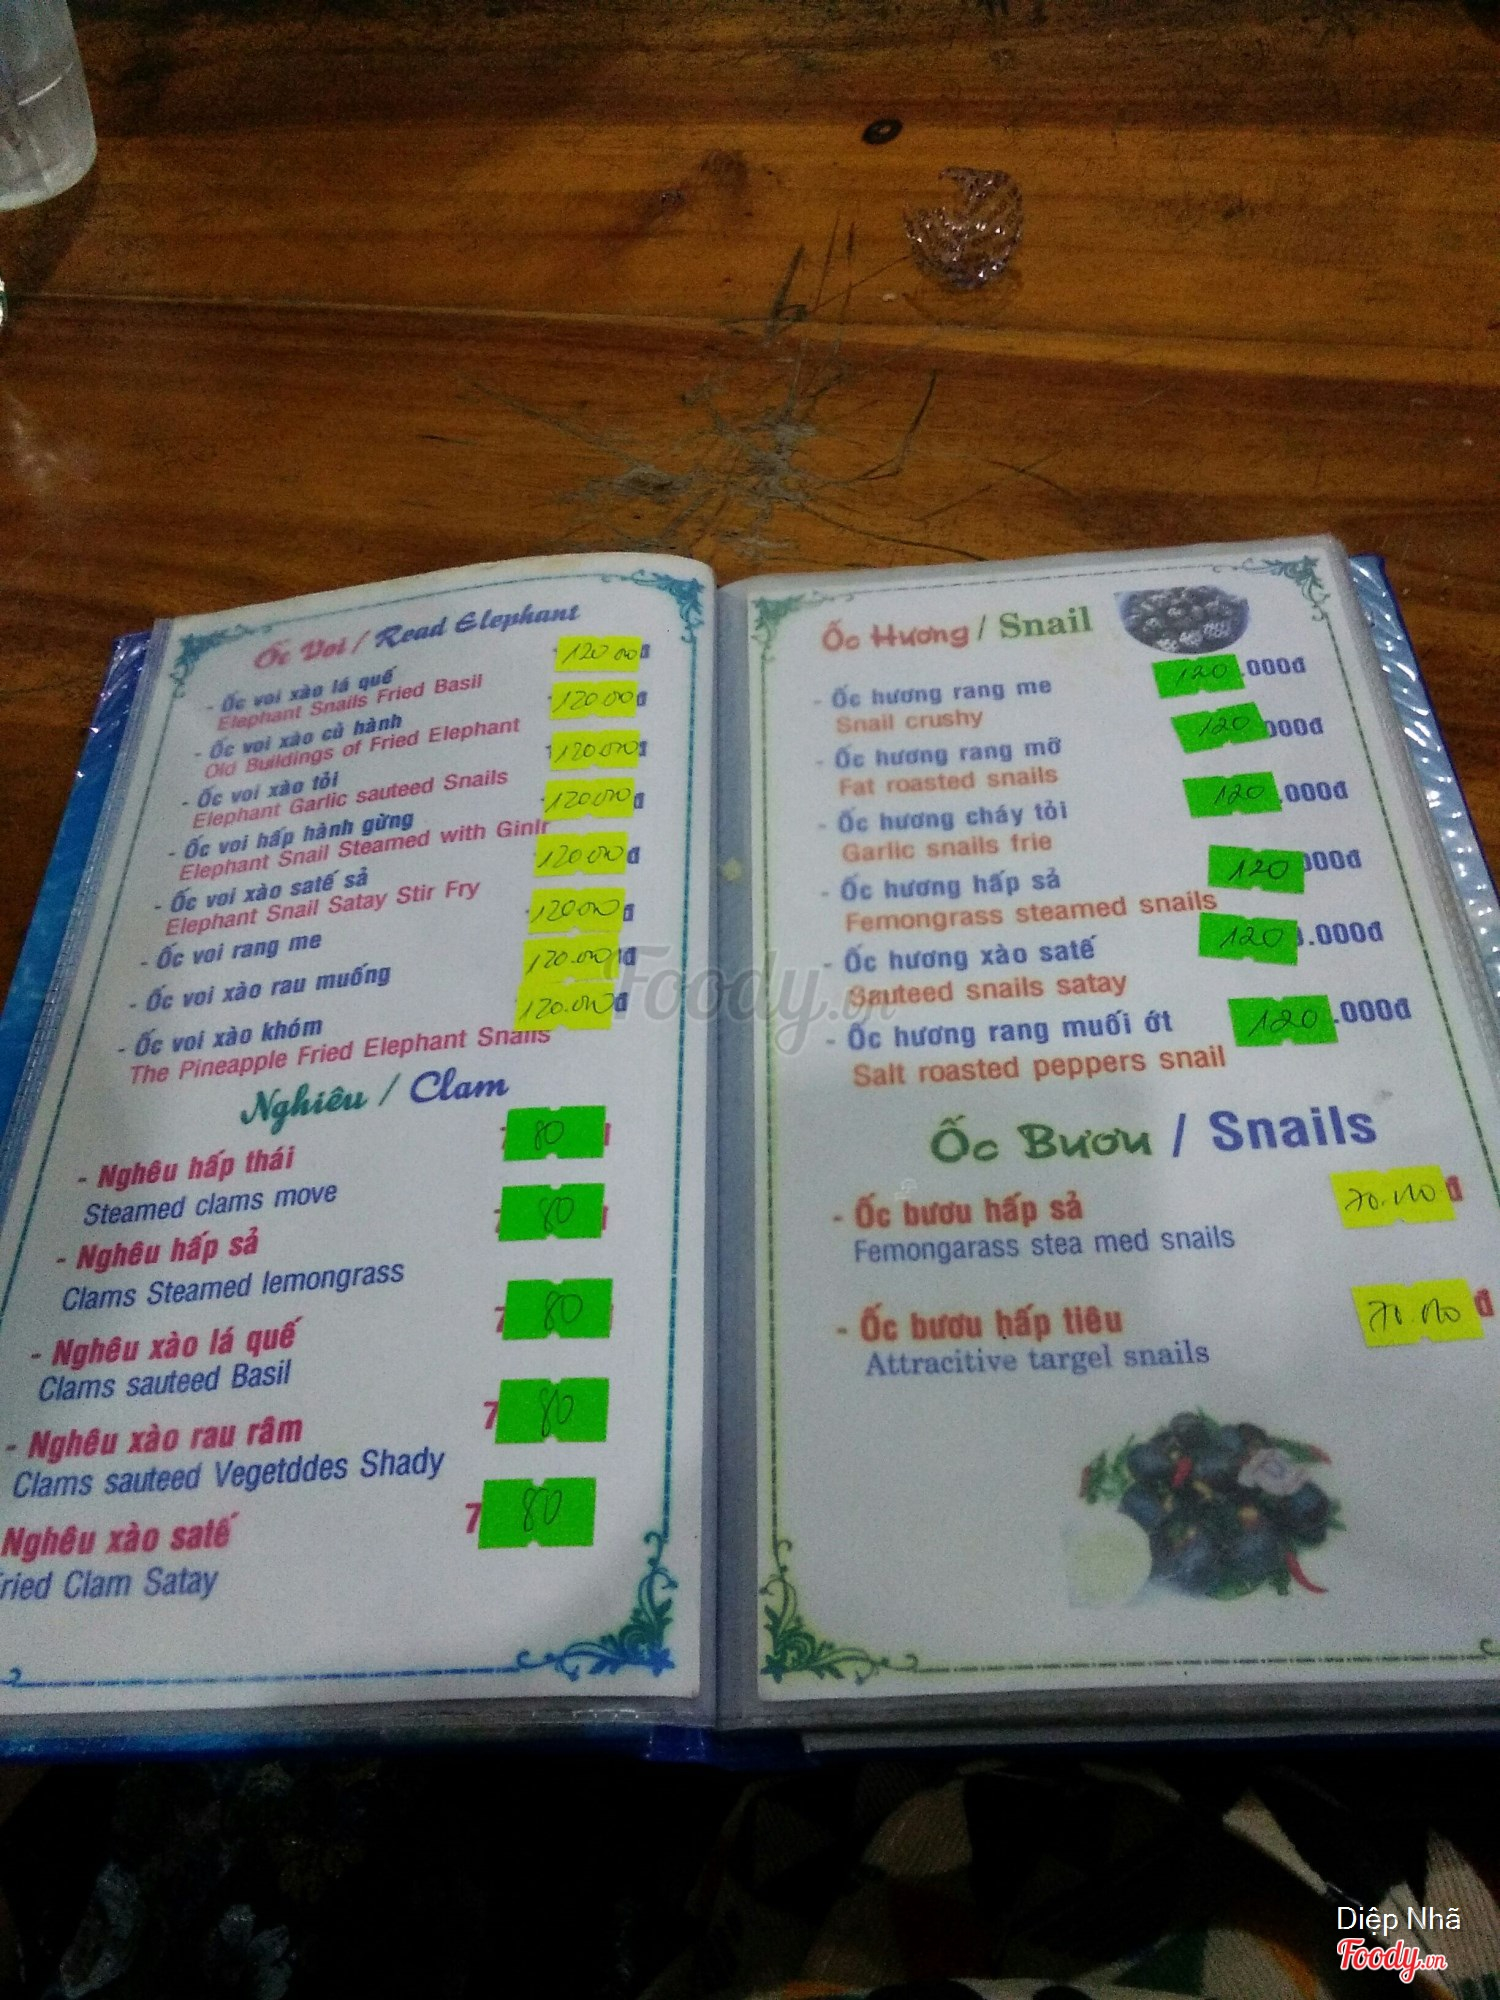 Ốc Voi / Read Elephant
- Ốc voi xào lá quế 120.000đ
Elephant Snails Fried Basil
- Ốc voi xào củ hành 120.000đ
Old Buildings of Fried Elephant
- Ốc voi xào tỏi 120.000đ
Elephant Garlic sauteed Snails
- Ốc voi hấp hành gừng 120.000đ
Elephant Snail Steamed with
- Ốc voi xào satế sả 120.000đ
Elephant Snail Satay Stir Fry
- Ốc voi rang me 120.000đ
- Ốc voi xào rau muống 120.000đ
- Ốc voi xào khóm 120.000đ
The Pineapple Fried Elephant Snails
Nghiêu / Clam
- Nghêu hấp thái 80
Steamed clams move
- Nghêu hấp sả 80
Clams Steamed lemongrass
- Nghêu xào lá quế 80
Clams sauteed Basil
- Nghêu xào rau râm 7 80
Clams sauteed Vegetddes Shady
Nghêu xào satế 7 80
ried Clam Satay
Ốc Hương / Snail
- Ốc hương rang me 120.000đ
Snail crushy
- Ốc hương rang mỡ 120 000đ
Fat roasted snails
- Ốc hương cháy tỏi 120.000đ
Garlic snails frie
- Ốc hương hấp sả 120 000đ
Femongrass steamed snails
- Ốc hương xào satế 120.000đ
Sauteed snails satay
- Ốc hương rang muối ớt 120.000đ
Salt roasted peppers snail
Ốc Bươu / Snails
- Ốc bươu hấp sả 70.000đ
Femongarass stea med snails
- Ốc bươu hấp tiêu 70.000đ
Attracitive targel snails
Foody.vn
Diệp Nhã
Foody.vn